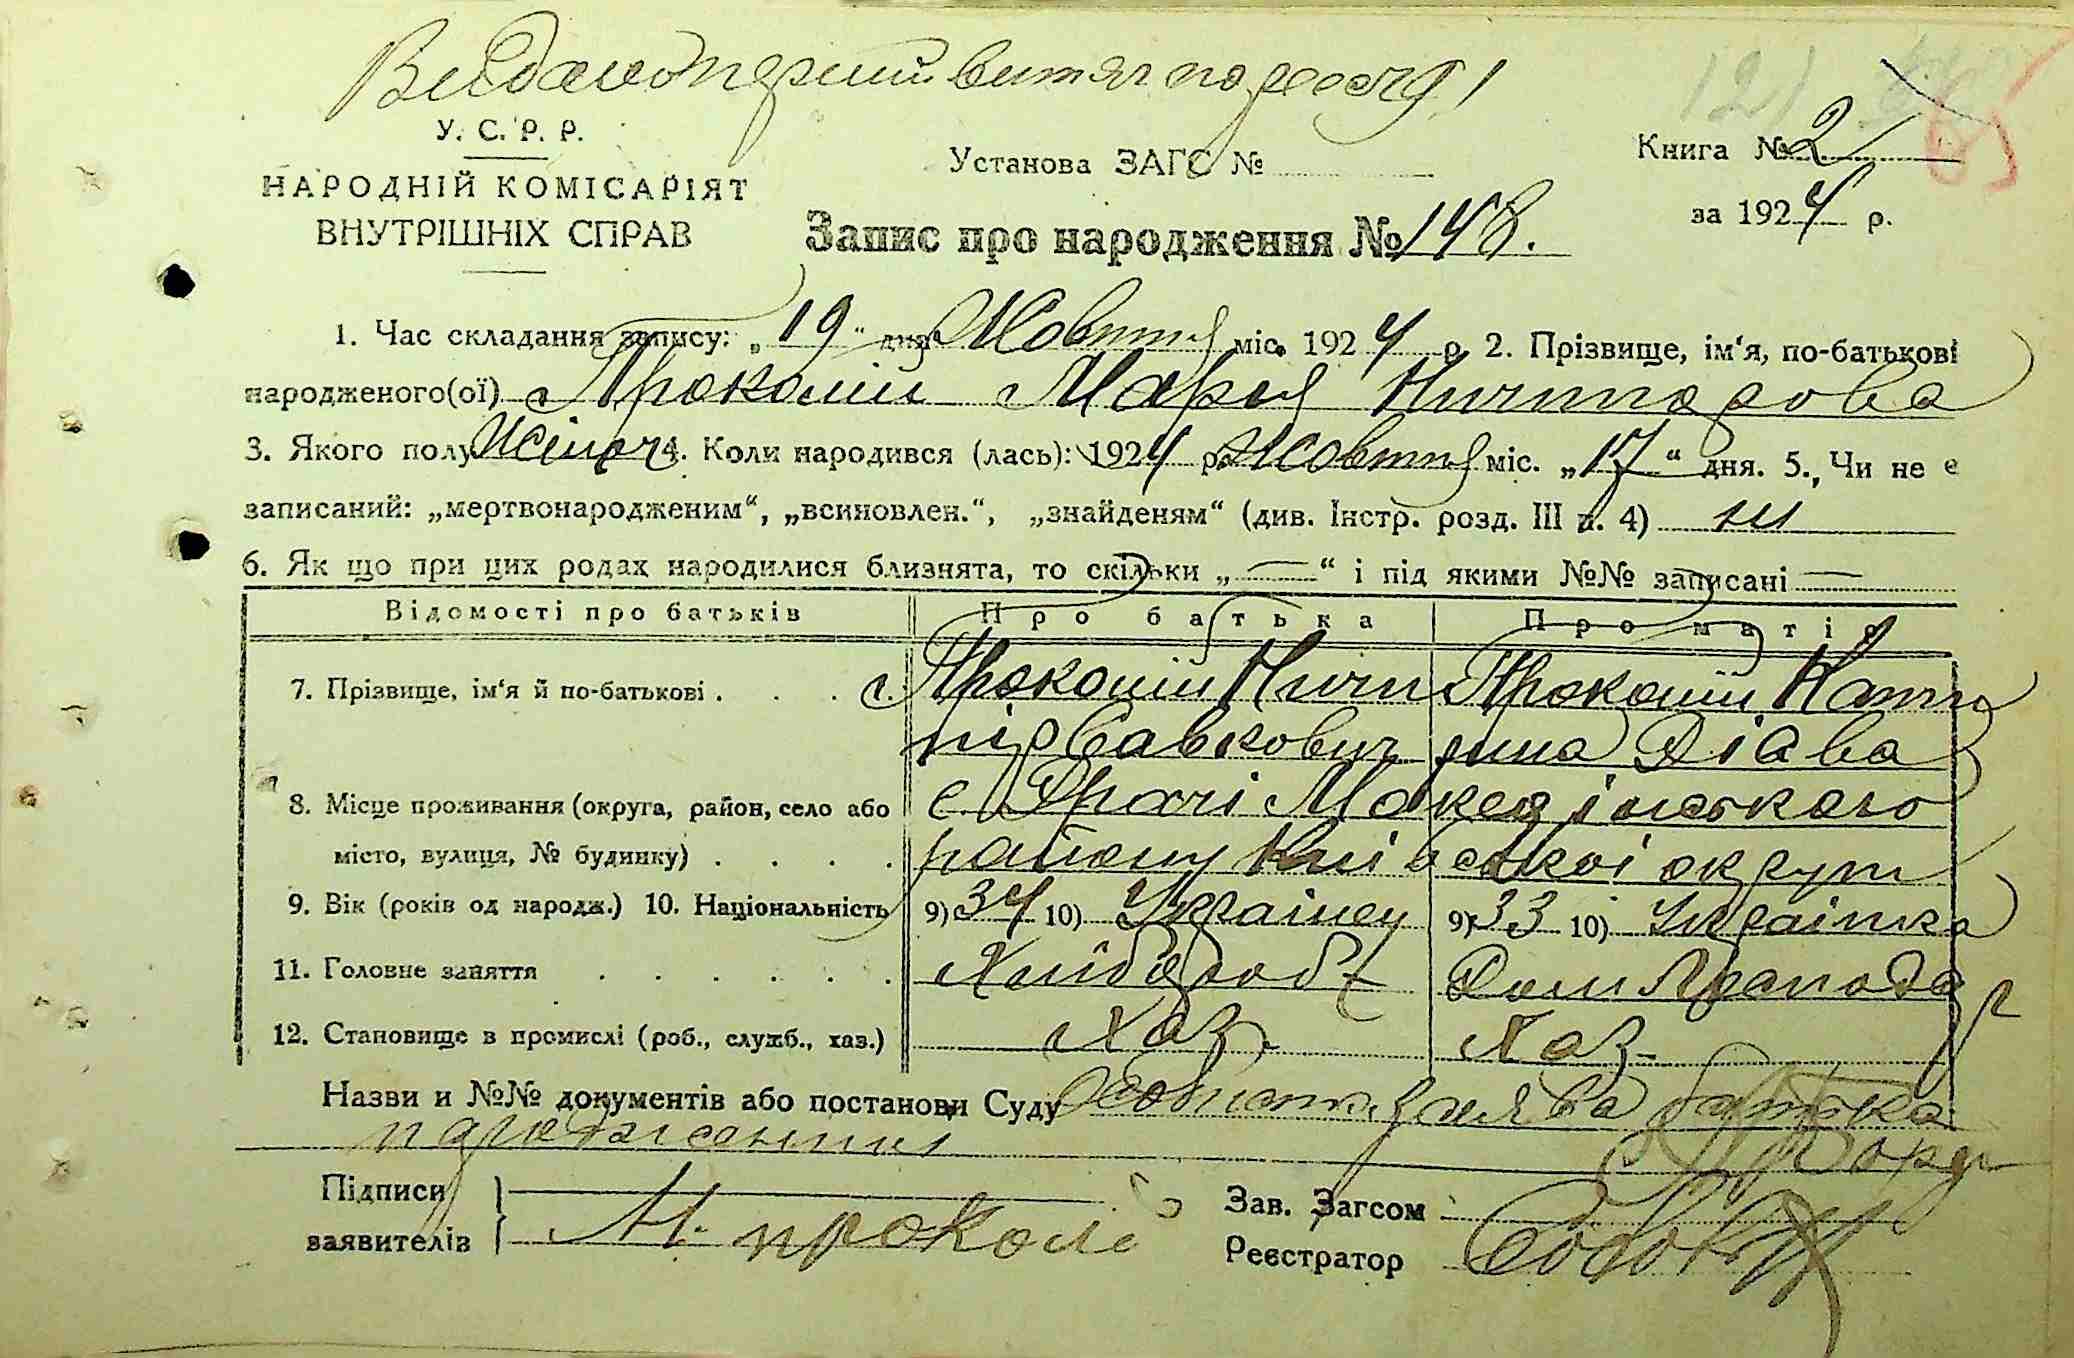 Видано перший витяг по реєстру
121
У. С. Р. Р.
НАРОДНІЙ КОМІСАРІЯТ
ВНУТРІШНІХ СПРАВ
Установа ЗАГС №
Книга № 2
за 1924 р.
Запис про народження № 148.
1. Час складання запису: „19“ дня Жовтня міс. 1924 р. 2. Прізвище, ім‘я, по-батькові
народженого(ої) Проколій Марія Ничипорова
3. Якого полу Жіноч 4. Коли народився (лась): 1924 р. Жовтня міс. „17“ дня. 5. Чи не є
записаний: „мертвонародженим“, „всиновлен.“, „знайденям“ (див. Інстр. розд. III п. 4) ні
6. Як що при цих родах народилися близнята, то скільки „—“ і під якими №№ записані —
Відомості про батьків Про батька Про матір
7. Прізвище, ім‘я й по-батькові . . . Проколій Ничи Проколій Кате
пір Савкович рина
8. Місце проживання (округа, район, село або с Драчі Македонського
місто, вулиця, № будинку) . . . . району Київської округи
9. Вік (років од народж.) 10. Національність 9) 34 10) Українець 9) 33 10) Українка
11. Головне заняття . . . . . . Хлібороб Дом Господар
12. Становище в промислі (роб., служб., хаз.) Хаз. Хаз.
Назви и №№ документів або постанови Суду Особиста заява батька
народження
Підписи
заявителів М. проколі
Зав. Загсом
Реєстратор